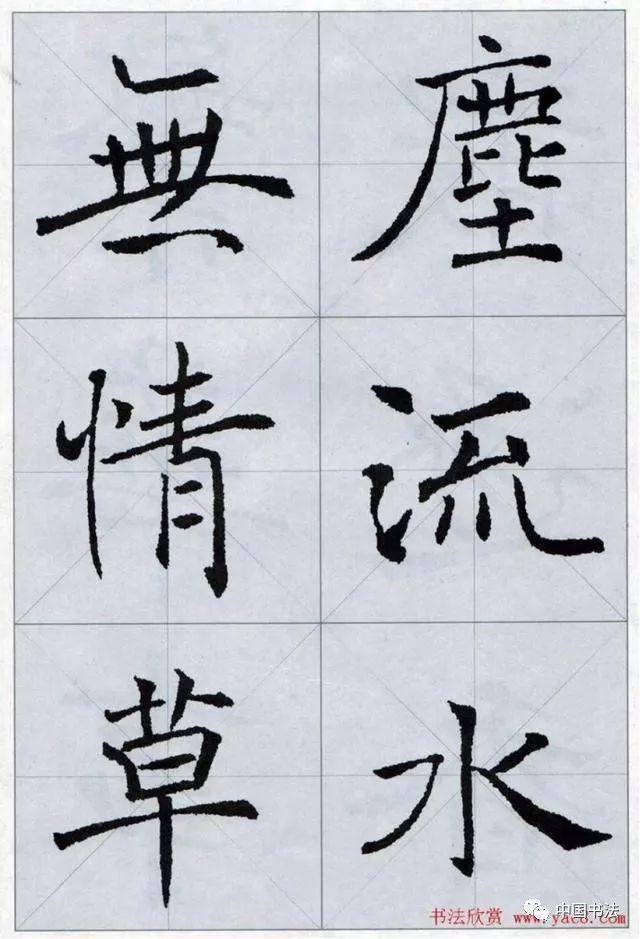 塵流水
無情草
中国书法
书法欣赏 www.yac8.com